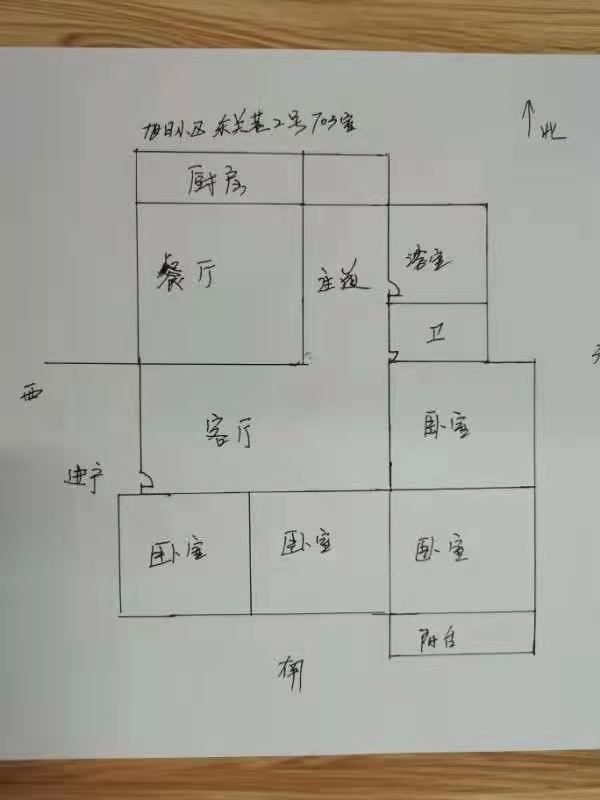 旭日小区 东关巷2号703室
北
厨房
餐厅
走道
浴室
卫
西
客厅
卧室
进户
卧室
卧室
卧室
阳台
南